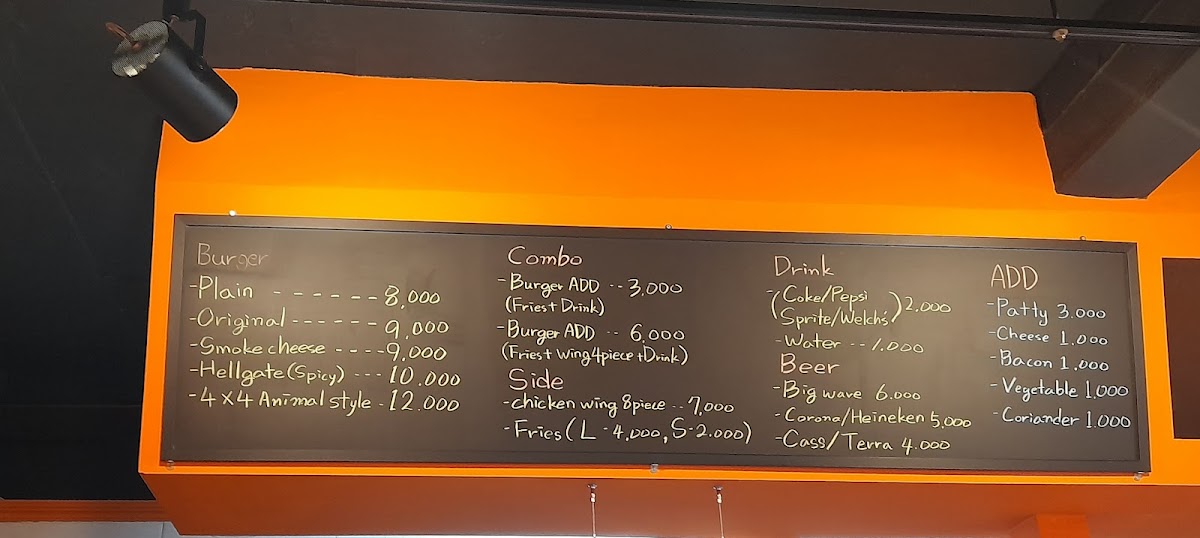 Burger
-Plain ------8,000
-Original ------ 9,000
-Smoke cheese ----9,000
-Hellgate (Spicy) --- 10.000
-4×4 Animal style - 12.000
Combo
-Burger ADD -- 3,000
(Fries+Drink)
-Burger ADD -- 6,000
(Fries+wing4piece+Drink)
Side
-chicken wing 8piece -- 7,000
-Fries (L - 4,000, S-2.000)
Drink
-(Coke/Pepsi
Sprite/Welch's) 2.000
-Water -- 1.000
Beer
-Big wave 6.000
-Corona/Heineken 5,000
-Cass/Terra 4.000
ADD
-Patty 3.000
-Cheese 1.000
-Bacon 1,000
-Vegetable 1,000
-Coriander 1.000